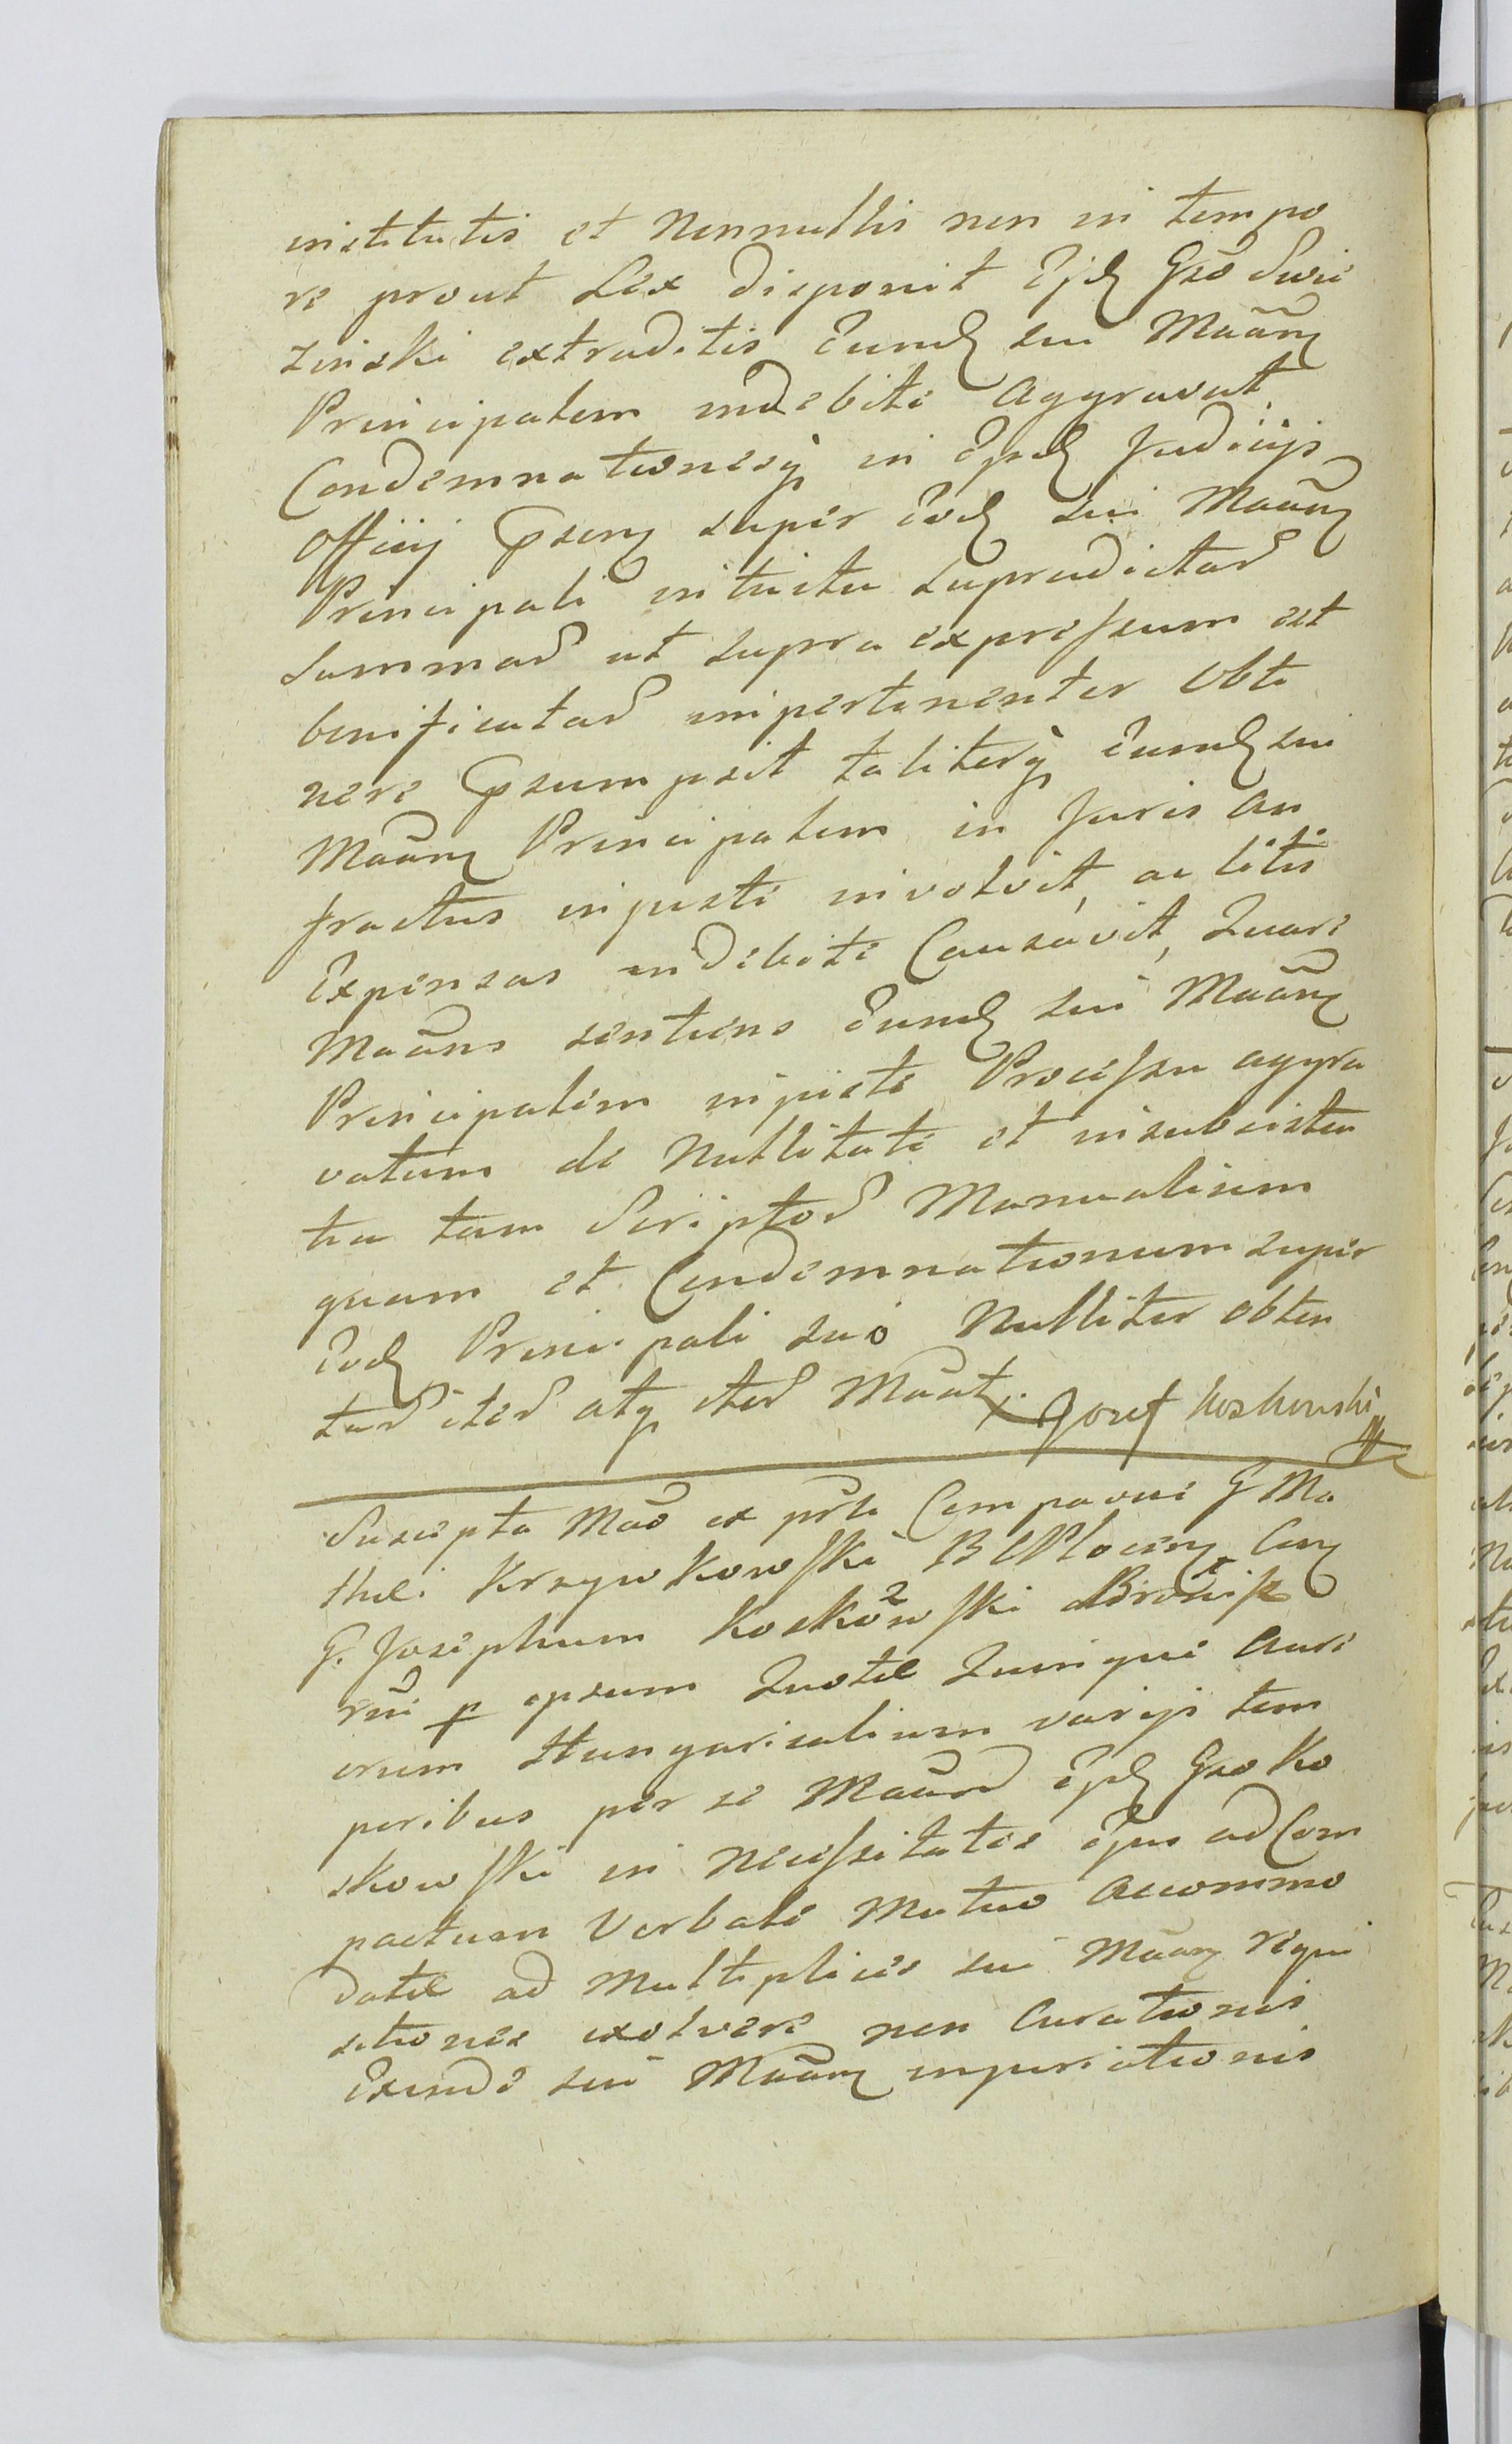 institutis et Nonnullis non in tempo
re prout Lex disponit Ejd Gso Swie
zinski extraditis Eund sui Maãm
Principalem indebite Aggravat,
Condemnationesq in Ejsd Judicijs
Officij psenq super Eod sui Maãnq
Principali intuitu supradictar
Summar ut supra expressum est
bonificatar impertinenter Obti
nere psumpsit taliterq Eumd sui
Maãnq Principalem in Juris an
fractus injuste involvit, ac litis
Expensas indebite Causavit, Quare
Maãns sentiens Eund sui Maãnq
Principalem injuste Processu aggra
vatum de Nullitate et insubsisten
tia tam Scriptor Manualium
quam et Condemnationum super
Eod Principali suo Nulliter obten
tar iter atq iter Maãt. Jozef Koskowski
Suscepta Mão ex prte Comparuit G Ma
thei Krzywkowski B C Plocenq Cong
G. Josephum Koskowski Bronisz
rni p ipsum Quotae Quinque Aure
orum Hungaricalium varijs tem
poribus per se Maãnd Ejsd Gso Ko
skowski in Necessitates Ejus ad Com
pactum Verbale Mutuo Accommo
datae ad Multiplices sui Maãnq requi
sitiones exolvere non Curationis
Exinde sui Maãnq injuriationis